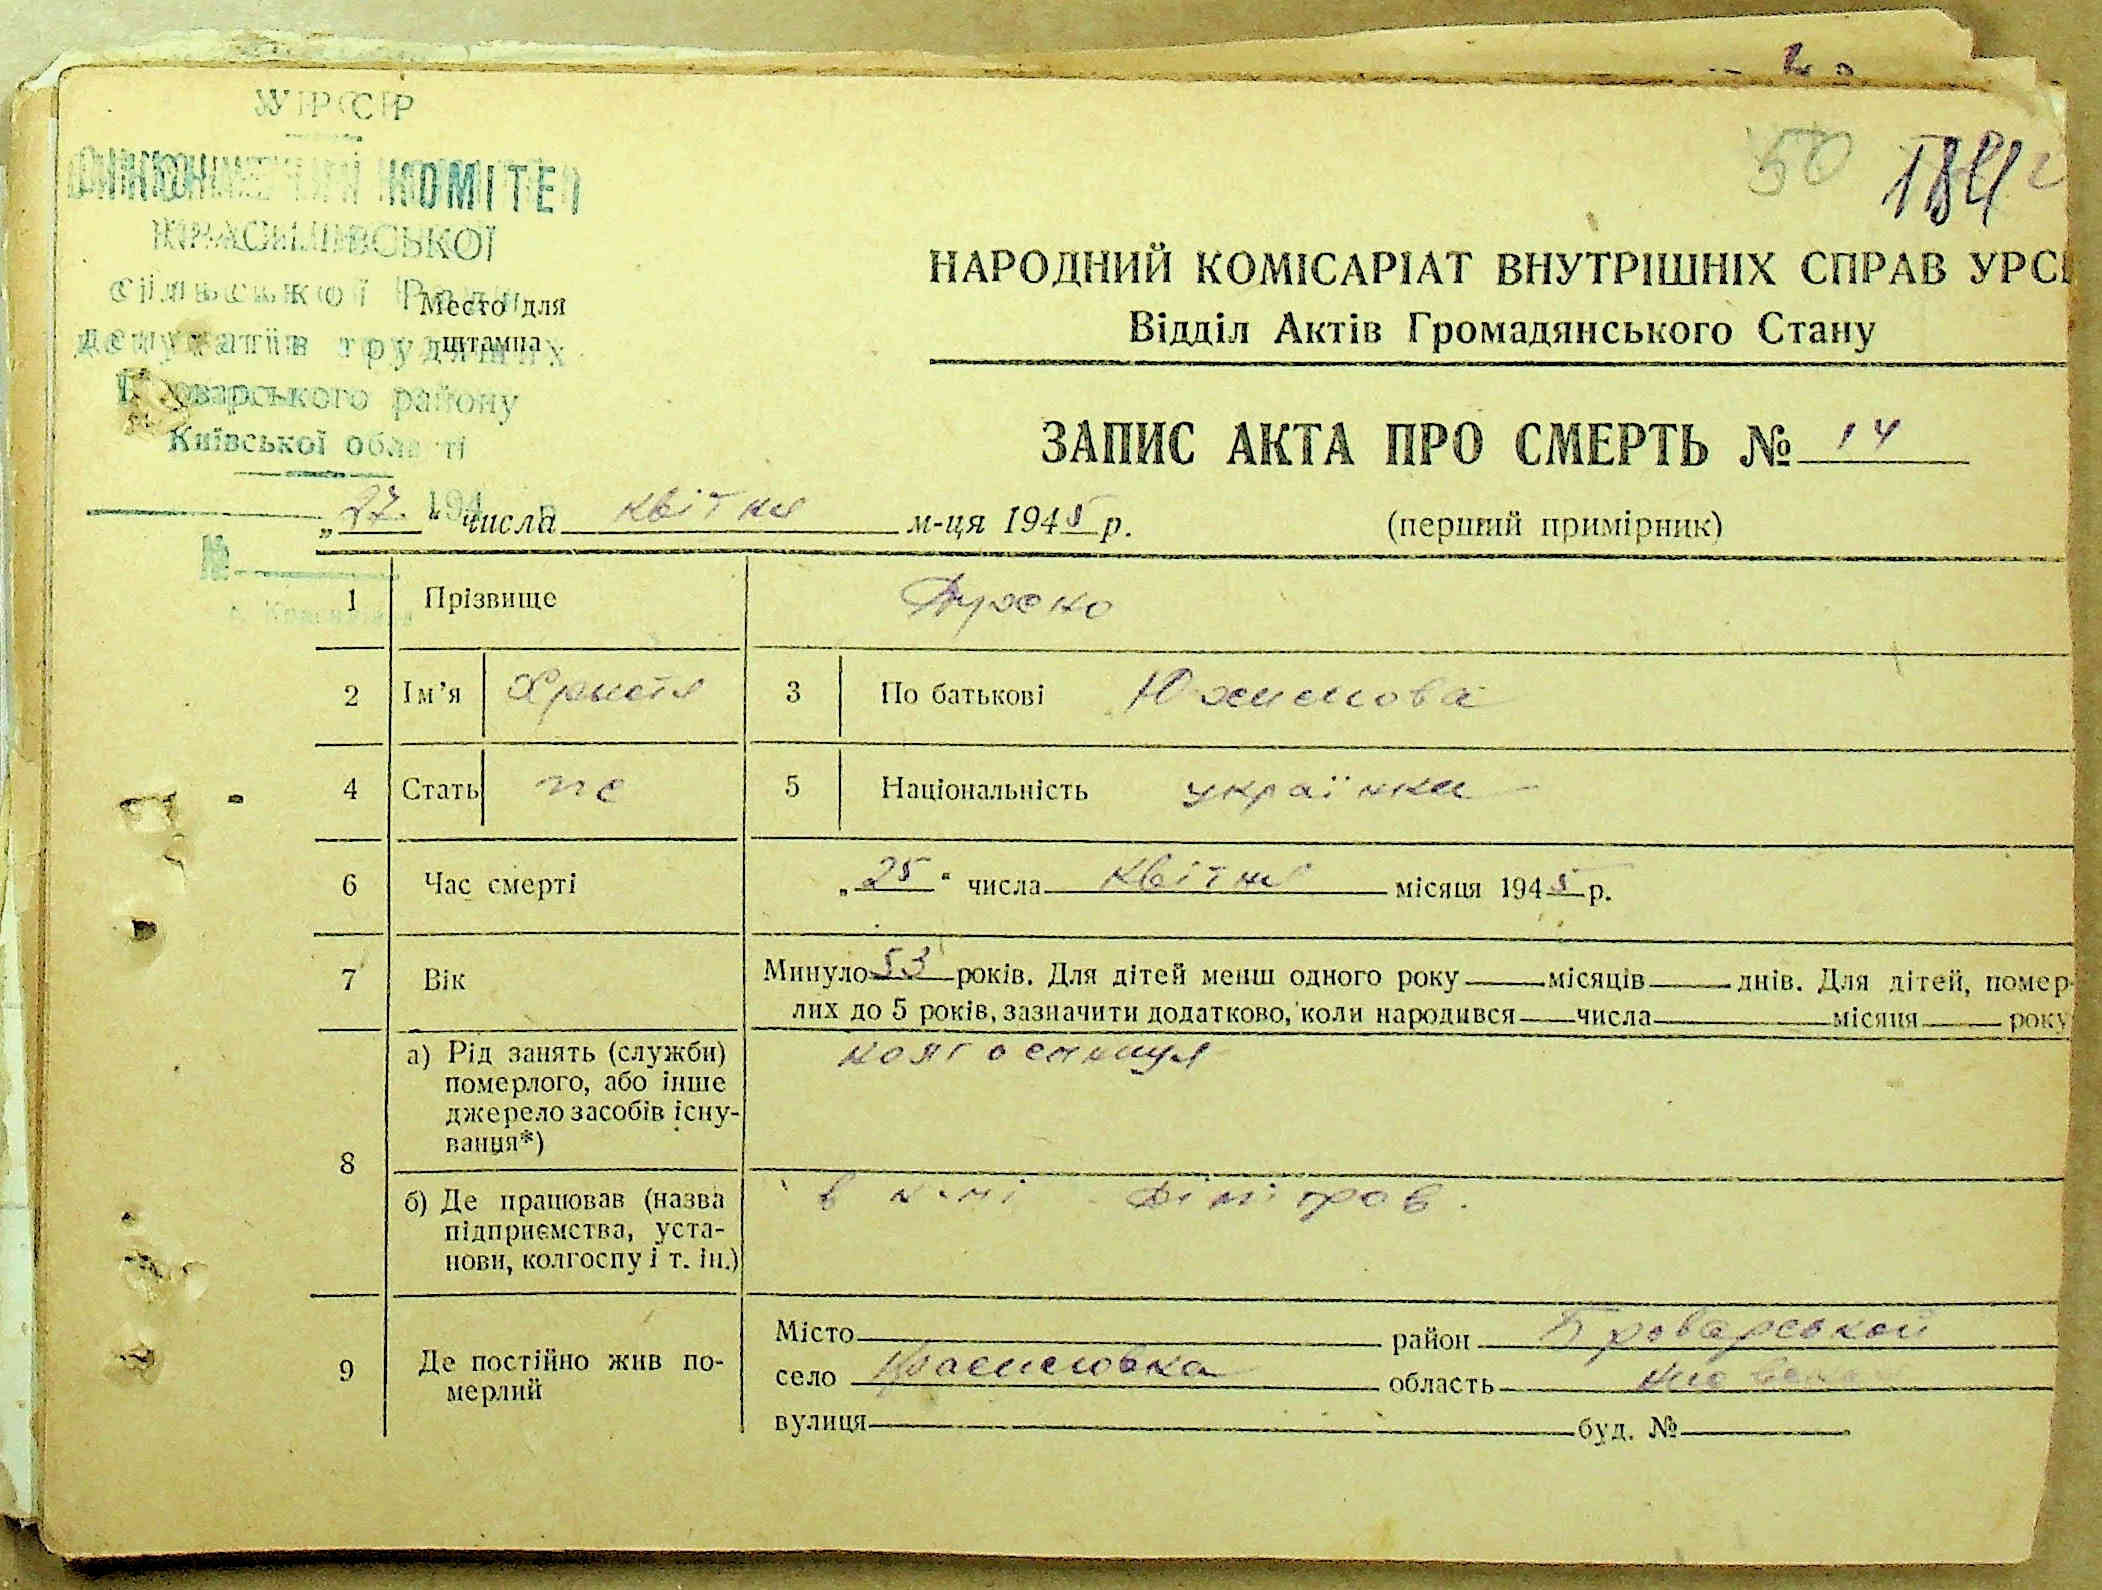 УРСР
ВИКОНАВЧИЙ КОМІТЕТ
КРАСИЛІВСЬКОЇ
сільської Ради
депутатів трудящих
Броварського району
Київської області
194 р.
№
с. Красилівка
Место для
штампа
50
НАРОДНИЙ КОМІСАРІАТ ВНУТРІШНІХ СПРАВ УРСР
Відділ Актів Громадянського Стану
ЗАПИС АКТА ПРО СМЕРТЬ № 14
„27“ числа квітня м-ця 1945 р.
(перший примірник)
1 Прізвище
2 Ім’я Христя 3 По батькові Юхимова
4 Стать 5 Національність українка
6 Час смерті „25“ числа квітня місяця 1945 р.
7 Вік Минуло 53 років. Для дітей менш одного року місяців днів. Для дітей, помер-
лих до 5 років, зазначити додатково, коли народився числа місяця року
8 а) Рід занять (служби) колгоспниця
померлого, або інше
джерело засобів існу-
вання*)
б) Де працював (назва в
підприємства, уста-
нови, колгоспу і т. ін.)
9 Де постійно жив по-
мерлий
Місто район Броварской
село Красиловка область
вулиця буд. №